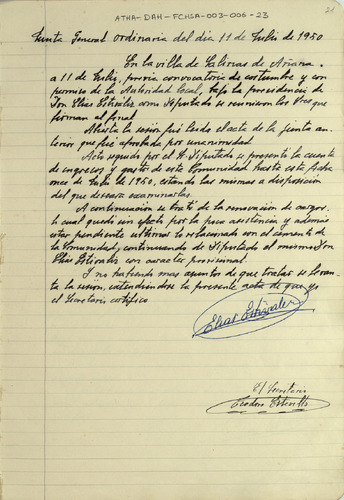 ATHA-DAH-FCHSA-003-006-23
21
Junta General Ordinaria del dia 11 de Julio de 1950
En la villa de Salinas de Añana
a 11 de Julio, previa convocatoria de costumbre y con
permiso de la Autoridad local, bajo la presidencia de
Don Elias Estivalez como Diputado se reunieron los Sres que
firman al final.
Abierta la sesión fué leida el acta de la junta an-
terior que fué aprobada por unanimidad.
Acto seguido por el Sr. Diputado se presentó la cuenta
de ingresos y gastos de esta Comunidad hasta esta fecha
once de Julio de 1950, estando las mismas a disposición
del que deseara examinarlas.
A continuación se trató de la renovación de cargos,
lo cual quedó sin efecto por la poca asistencia y además
estar pendiente ultimar lo relacionado con el cemento de
la Comunidad, continuando de Diputado el mismo Don
Elias Estivalez con caracter provisional.
Y no habiendo mas asuntos de que tratar se levan-
ta la sesión, extendiendose la presente acta de que yo
el Secretario certifico
Elias Estivalez
El Secretario
Teodoro